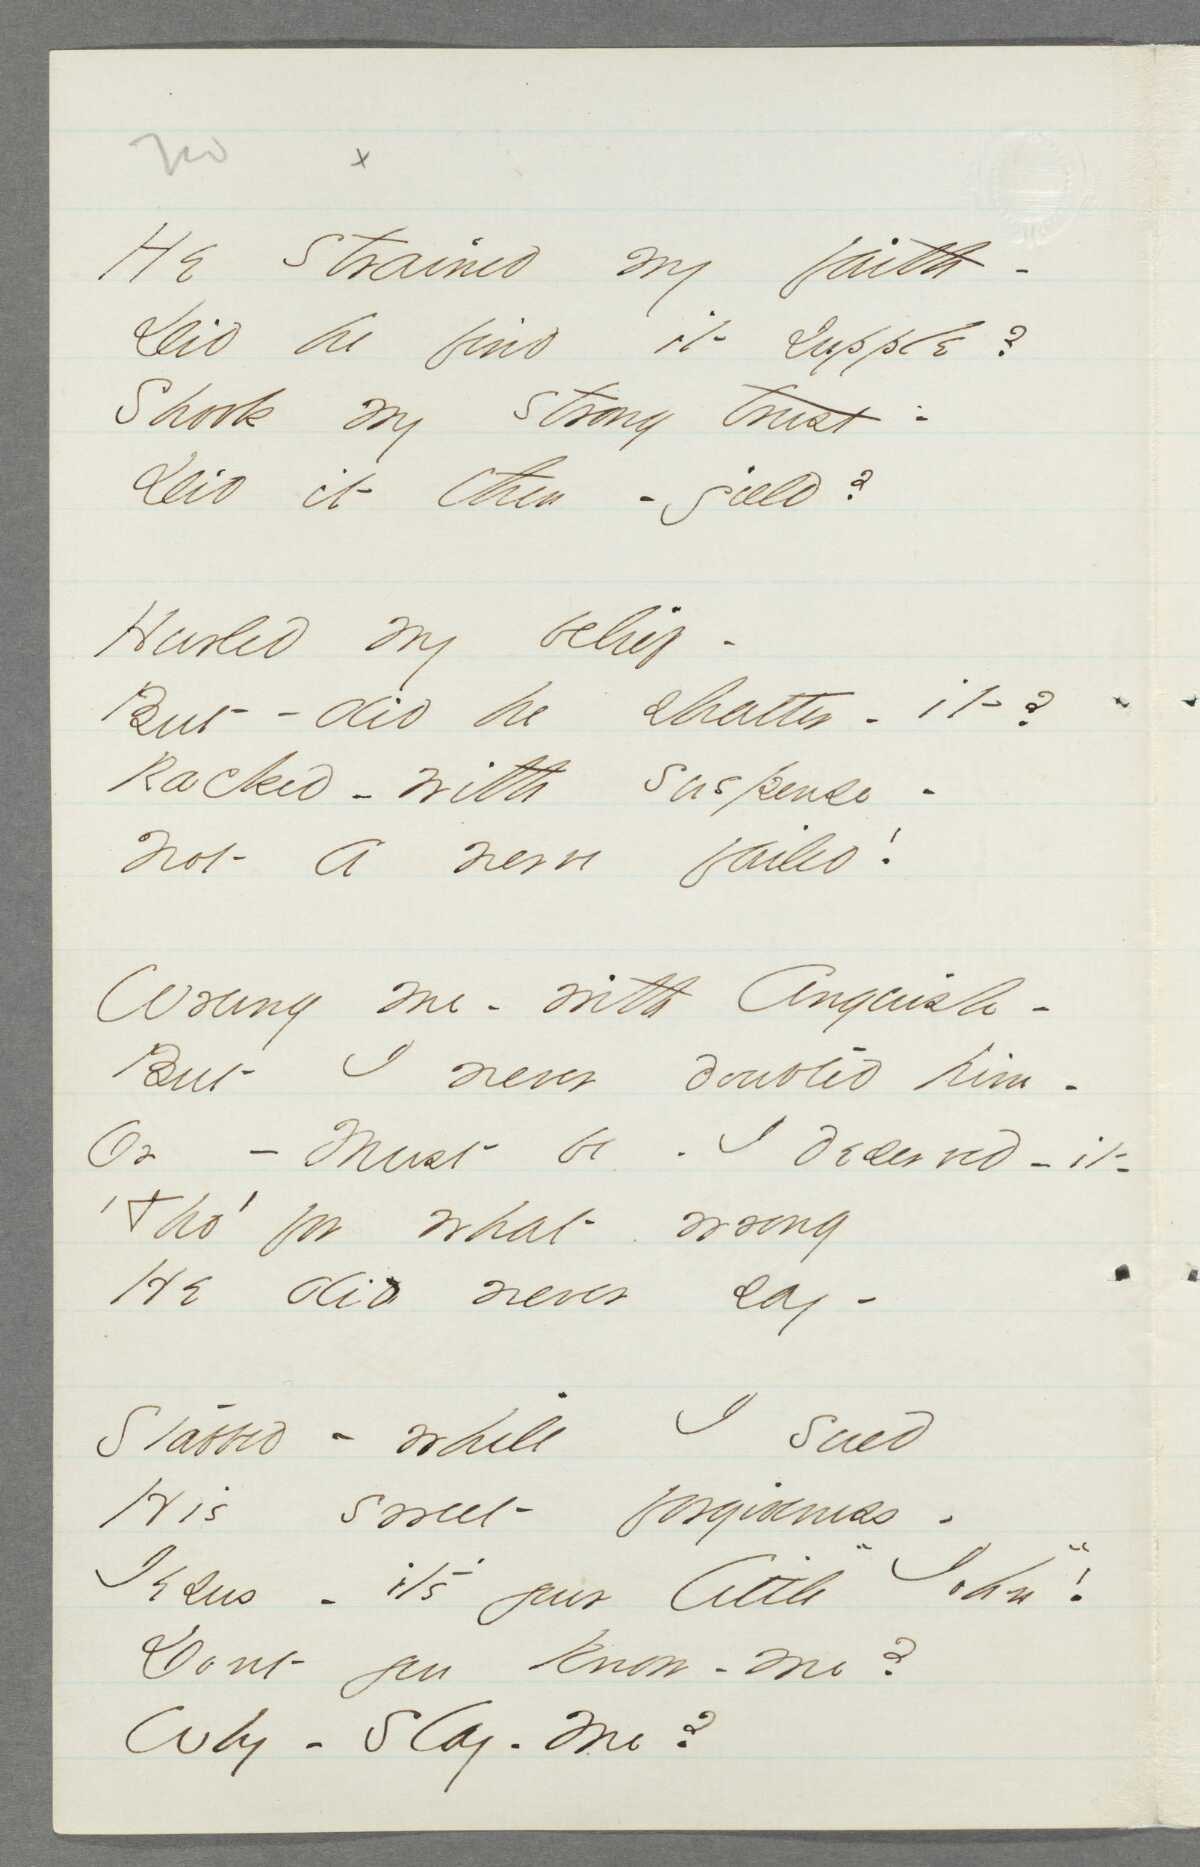 x
He strained my faith -
Did he find it supple?
Shook my strong trust -
Did it then - yield?
Hurled my belief -
But - did he shatter - it?
Racked - with suspense -
Not a nerve failed!
Wrung me - with Anguish -
But I never doubted him -
Or - Must be - I deserved - it -
'Tho' for what wrong
He did never say -
Stabbed - while I sued
His sweet forgiveness -
Jesus - it's your little "John"!
Dont you know - me?
Why - Slay - Me?